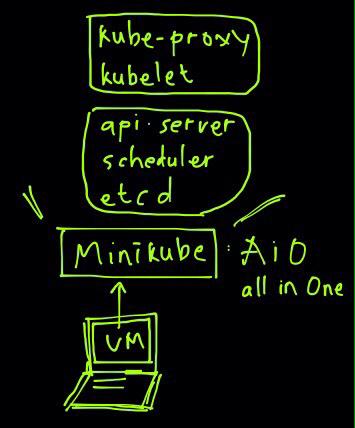 kube-proxy
kubelet
api-server
scheduler
etcd
Minikube : AiO
all in One
VM